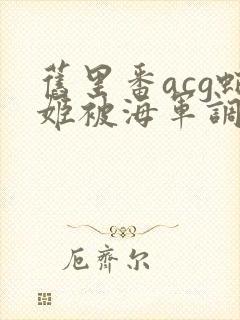 舊里番acg蛇
姬被海軍調
厄齊尔